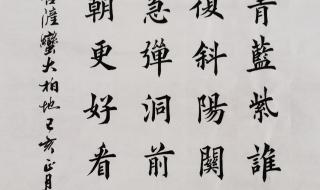 青藍紫誰
復斜陽關
急彈洞前
朝更好看
薩蠻大柏地己亥正月